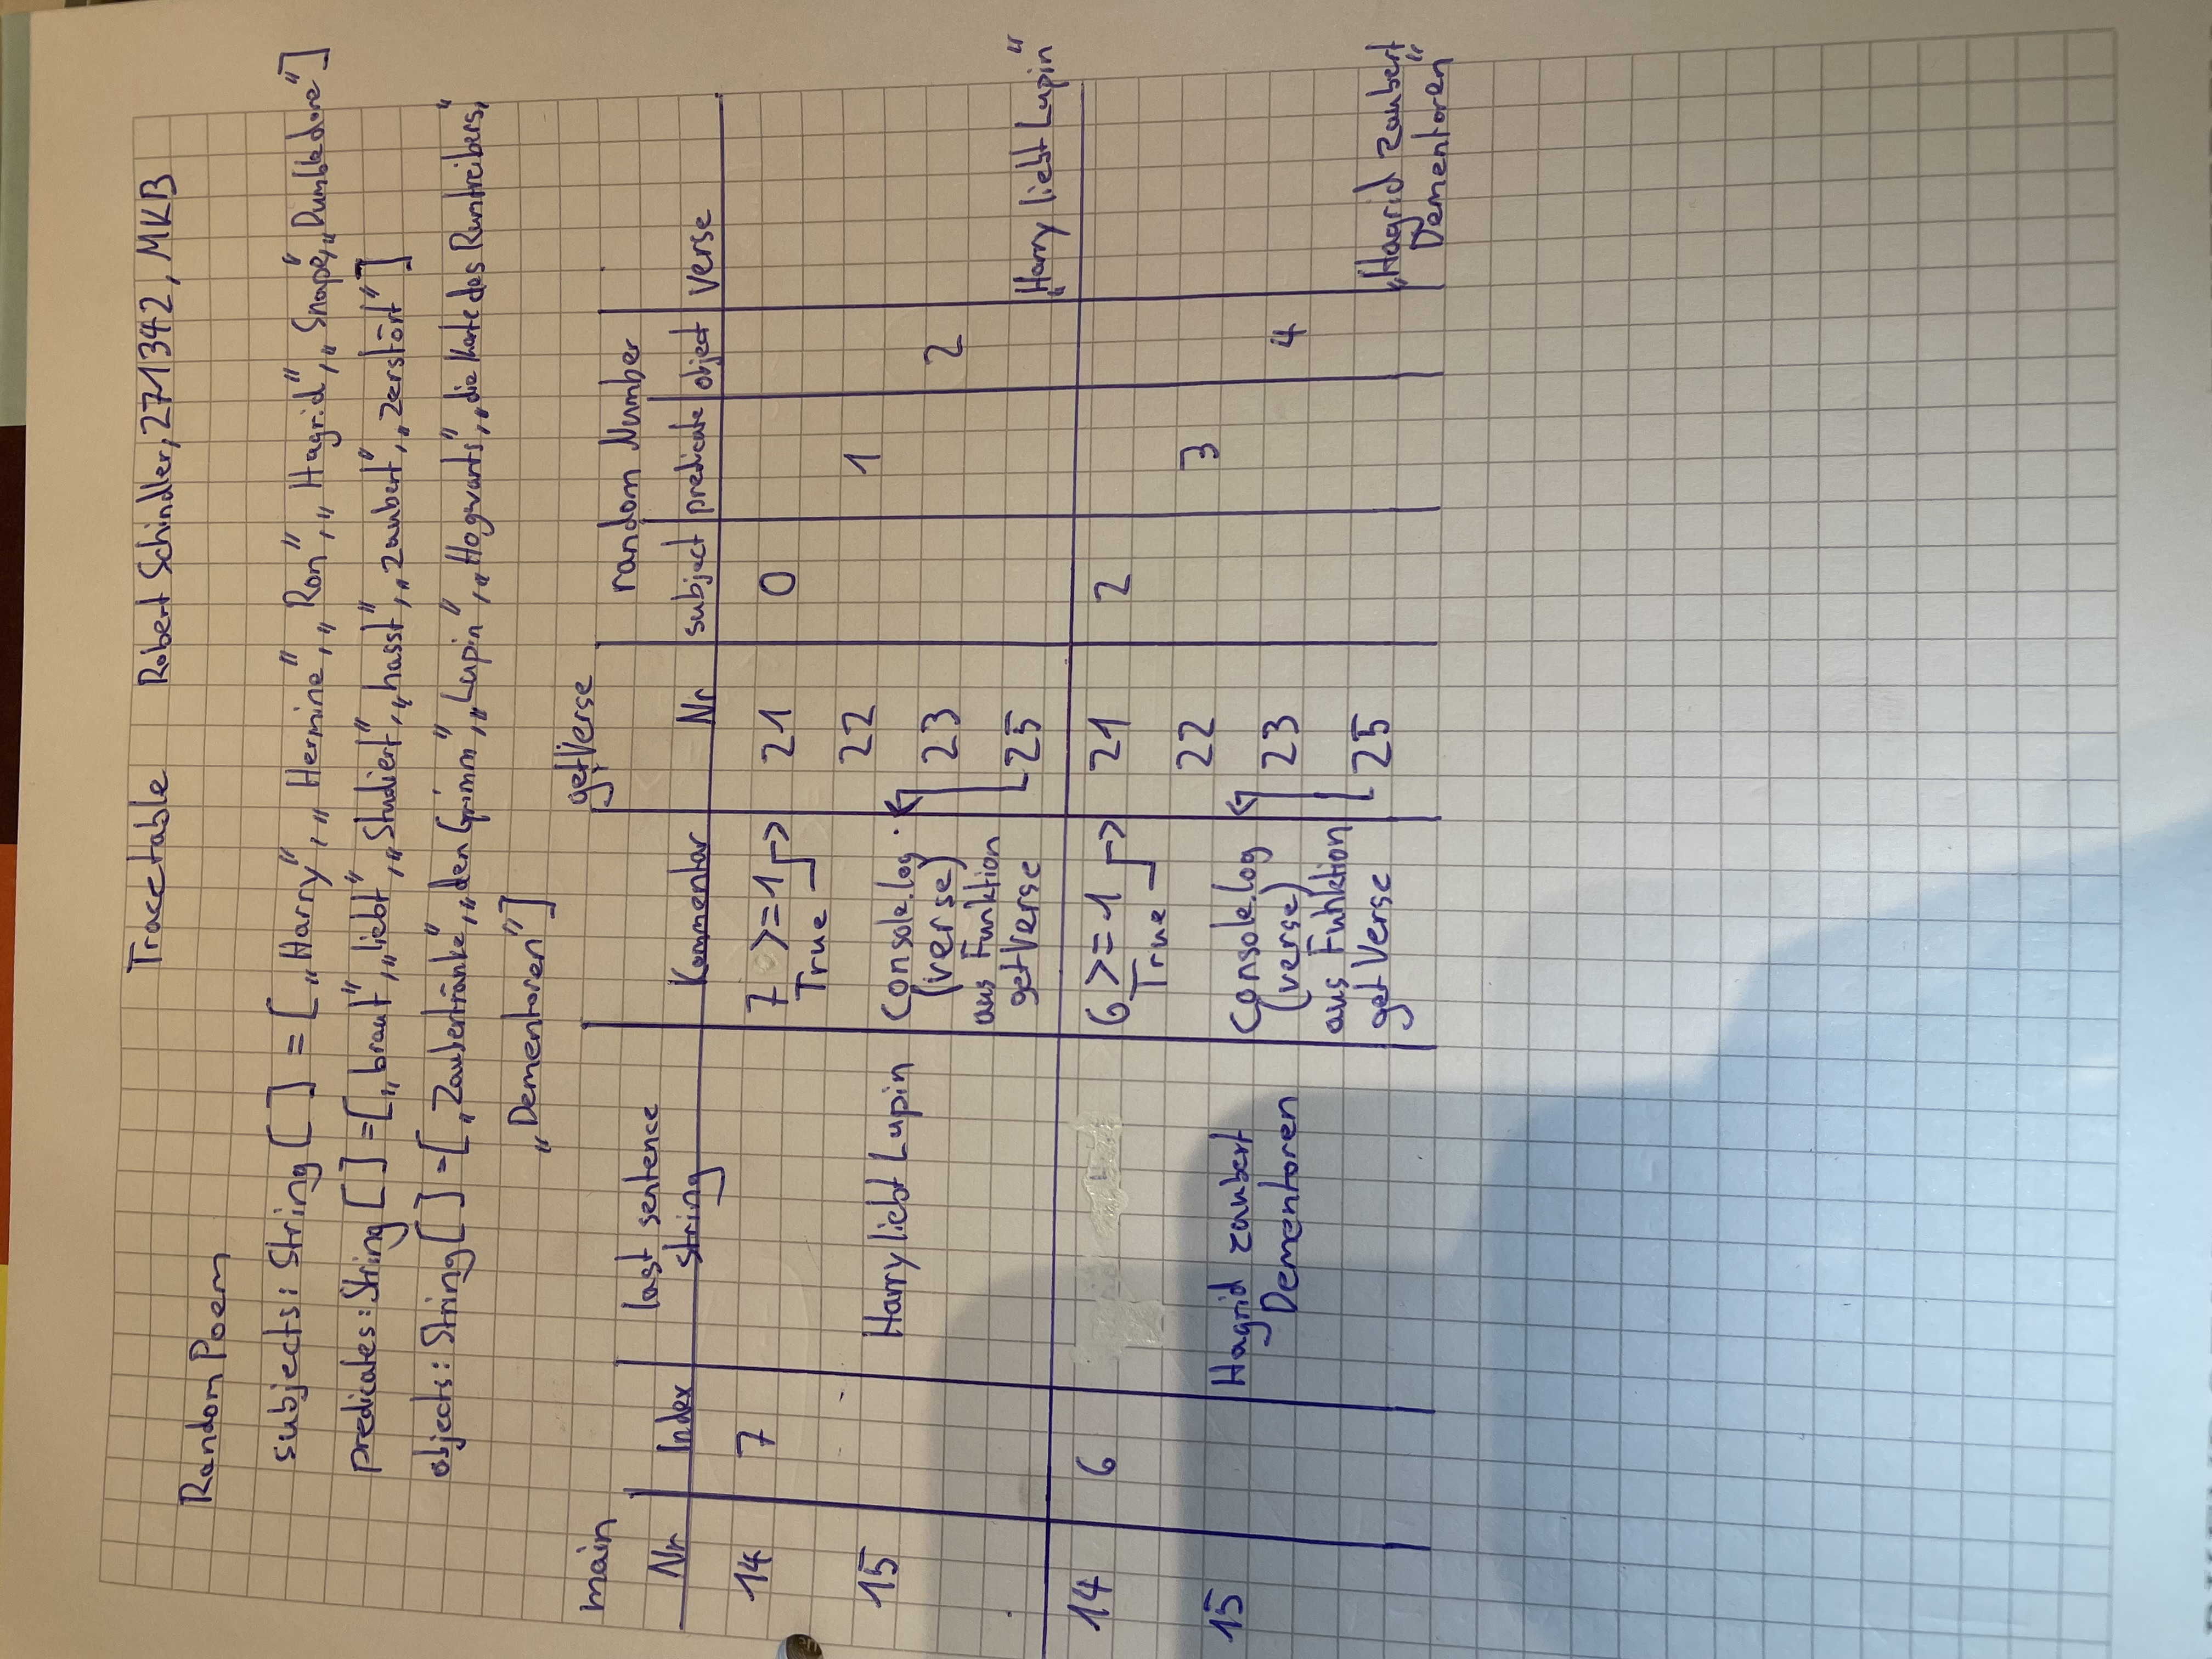 Tracetable Robert Schindler, 271342, MKB
Random Poem
subjects: String [ ] = [„Harry“, „Hermine“, „Ron“, „Hagrid“, „Snape“, „Dumbledore“]
predicates: String [ ] = [„braut“, „liebt“, „Studiert“, „hasst“, „zaubert“, „zerstört“]
objects: String [ ] = [„Zaubertränke“, „den Grimm“, „Lupin“, „Hogwarts“, „die Karte des Rumtreibers“,
„Dementoren“]
main getVerse
Nr Index last sentence string Kommentar Nr random Number subject predicate object verse
14 7 7 >=1 21 0
True
22 1
15 Harry liebt Lupin console.log
(verse) 23 2
aus Funktion
getVerse 25 „Harry liebt Lupin“
14 6 6 >=1 21 2
True
22 3
15 Hagrid zaubert console.log
Dementoren (verse) 23 4
aus Funktion
getVerse 25 „Hagrid zaubert
Dementoren“